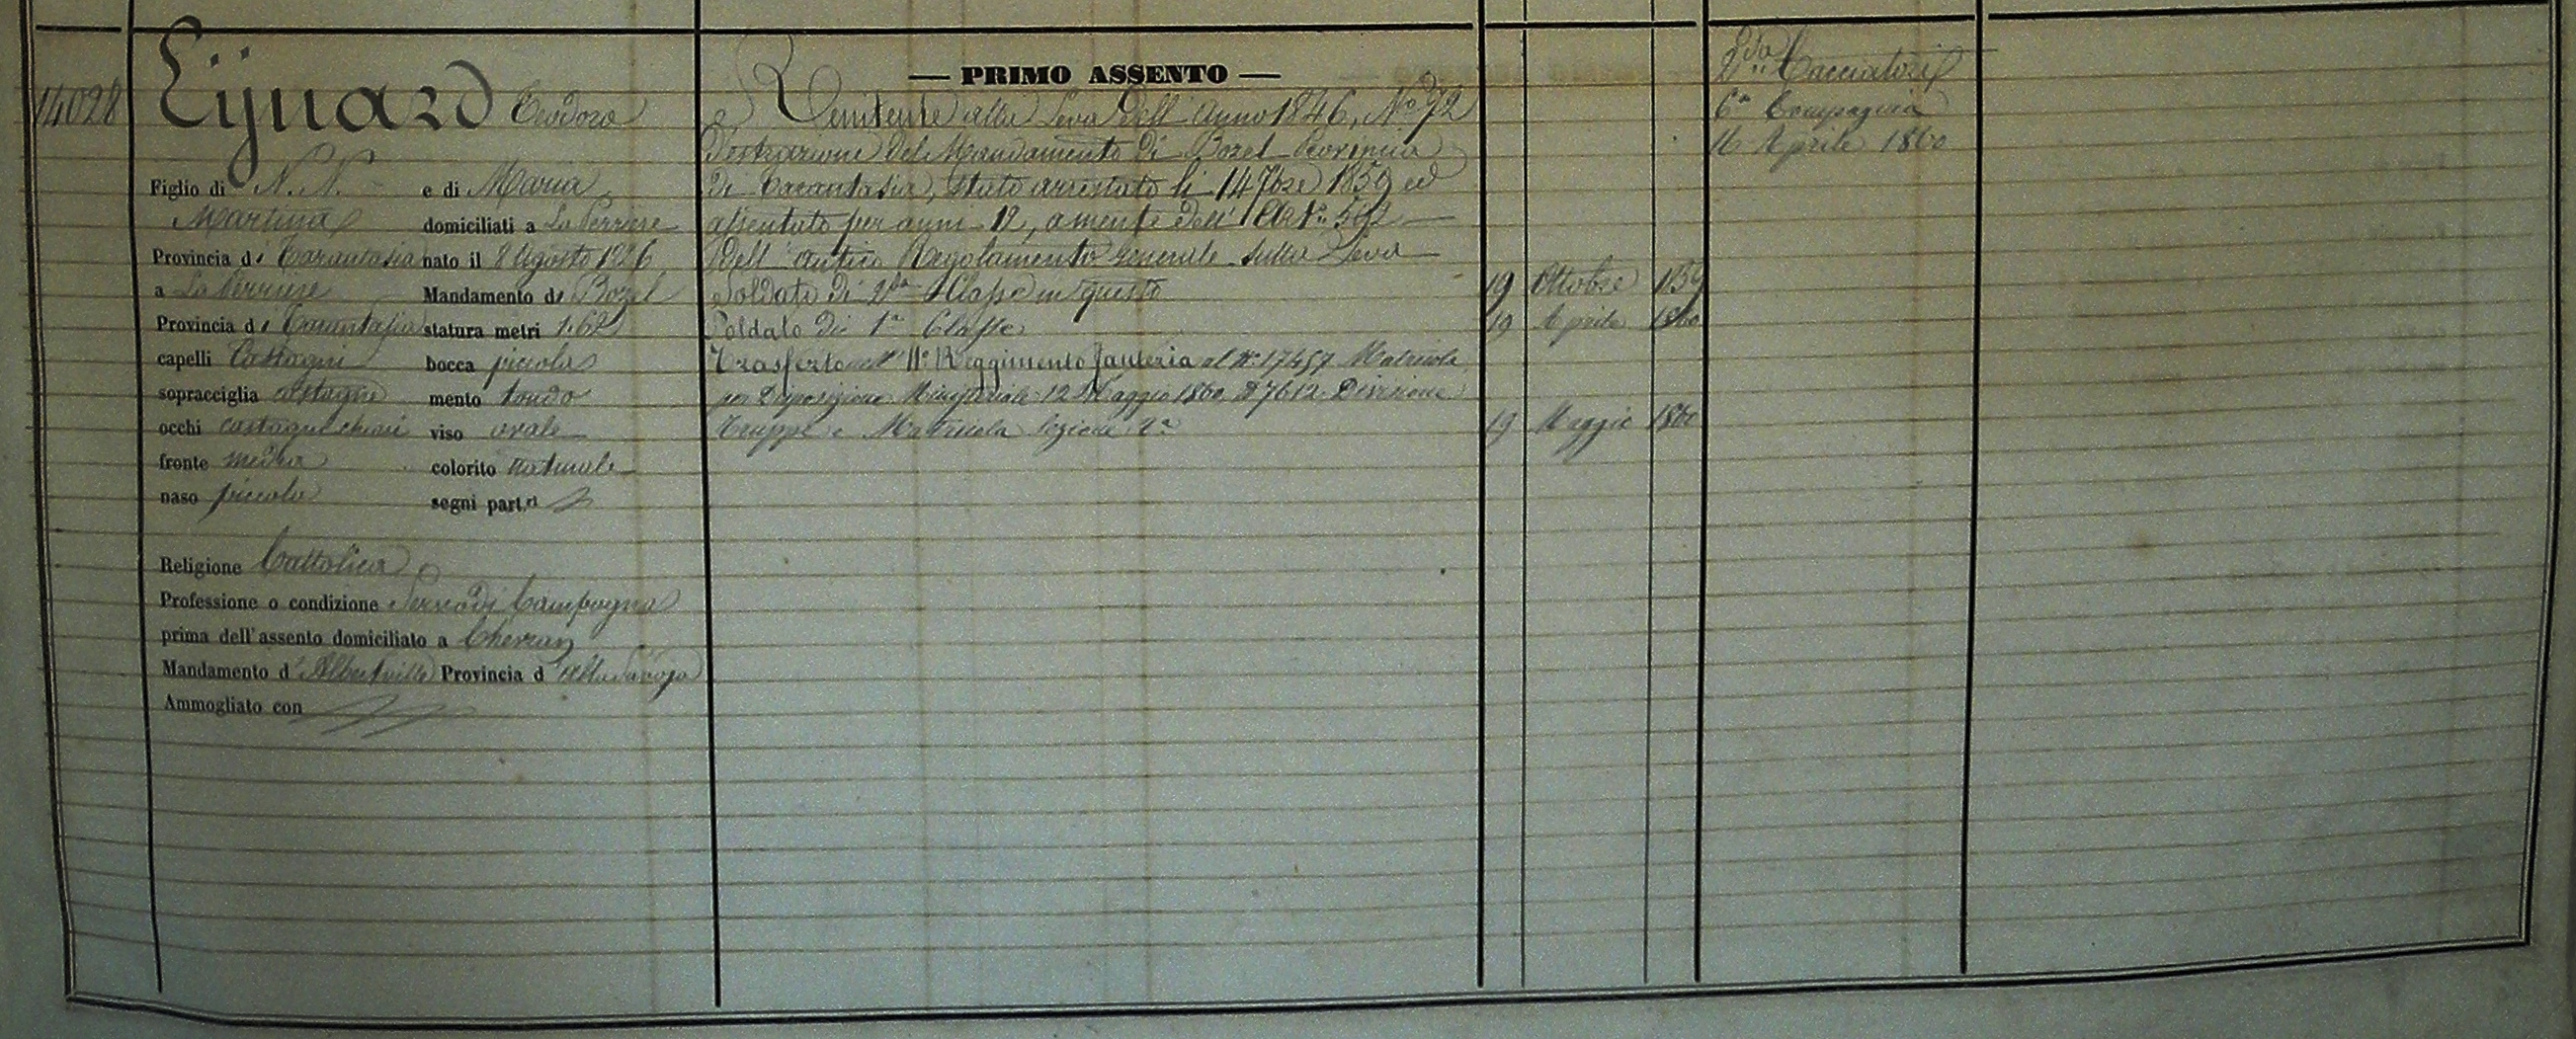 14028
Eynard Teodoro
Figlio di N. N. e di Maria
Martina domiciliati a La Perriere
Provincia di Tarantasia nato il 8 Agosto 1826
a La Perriere Mandamento di Bozel
Provincia di Tarantasia statura metri 1.62
capelli Castagni bocca piccola
sopracciglia castagne mento tondo
occhi castagni chiari viso ovale
fronte media colorito naturale
naso piccolo segni part.ri
Religione Cattolica
Professione o condizione Servo di Campagna
prima dell'assento domiciliato a
Mandamento d'Albertville Provincia d'Alta Savoja
Ammogliato con
— PRIMO ASSENTO —
Renitente alla Leva dell'Anno 1846, No 72
d'estrazione del Mandamento di Bozel Provincia
di Tarantasia, stato arrestato li 14 7bre 1859 ed
assentato per anni 12, a mente dell'
dell'antico Regolamento Generale sulla Leva
Soldato di 2da Classe in questo 19 Ottobre 1859
Soldato di 1a Classe 19 Aprile 1860
Trasferto nell' 11o Reggimento fanteria al No 17457 Matricola
per Disposizione Ministeriale 12 Maggio 1860 No 7612 Divisione
Truppe e Matricola Sezione 2a 19 Maggio 1860
2da Cacciatori
6a Compagnia
16 Aprile 1860